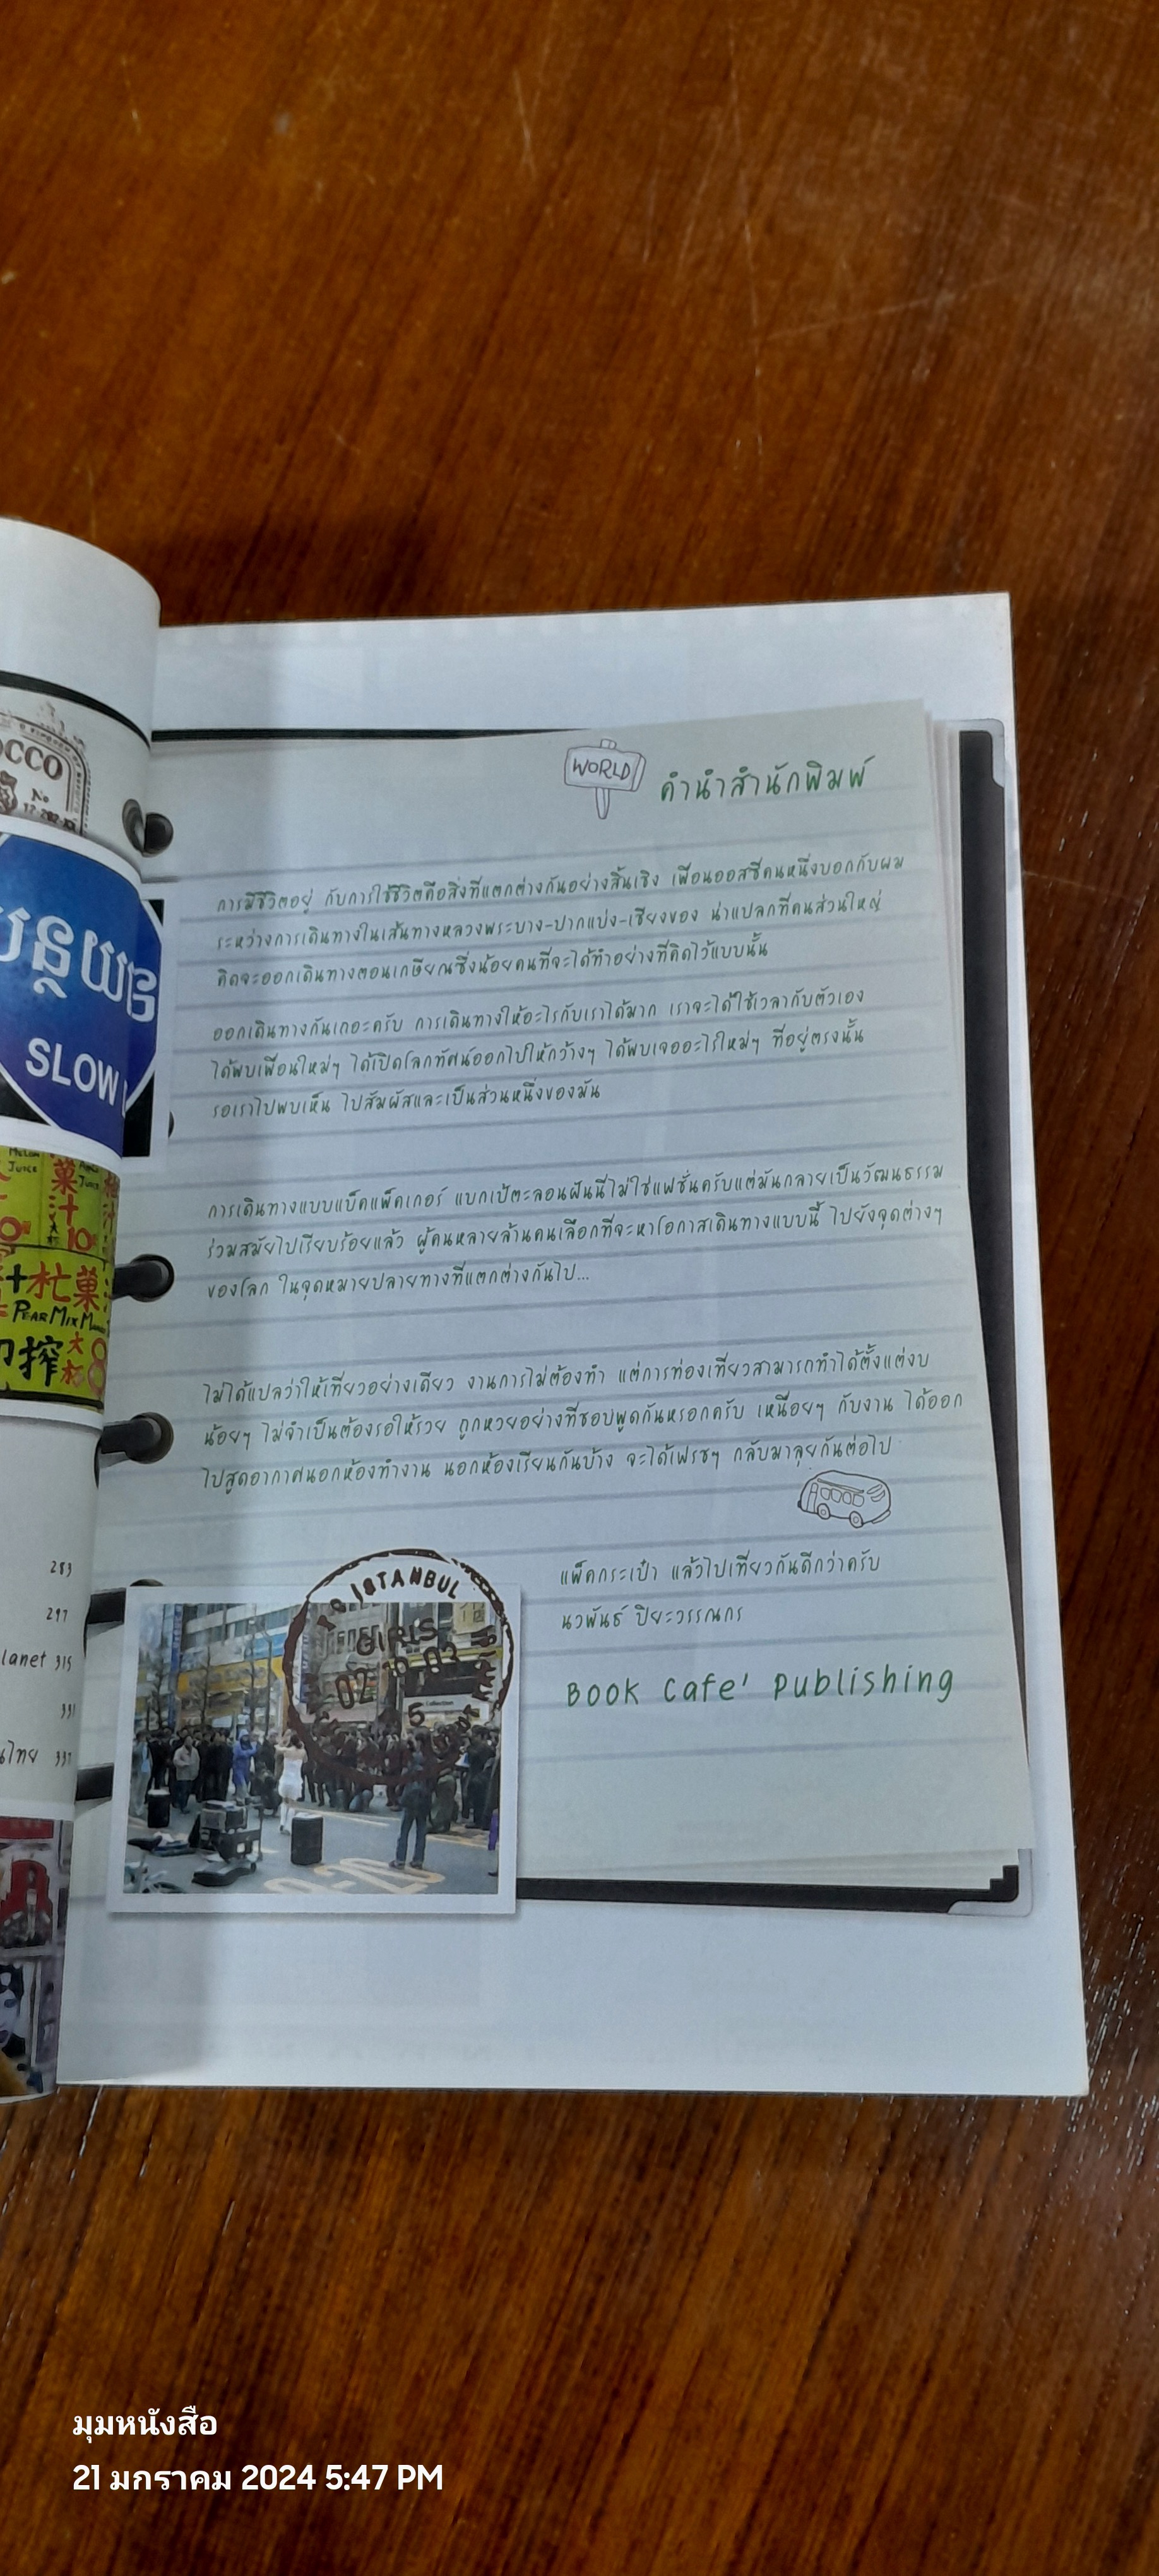 WORLD
คำนำสำนักพิมพ์
การมีชีวิตอยู่ กับการใช้ชีวิตคือสิ่งที่แตกต่างกันอย่างสิ้นเชิง เพื่อนออสซี่คนหนึ่งบอกกับผม
ระหว่างการเดินทางในเส้นทางหลวงพระบาง-ปากแบ่ง-เชียงของ น่าแปลกที่คนส่วนใหญ่
คิดจะออกเดินทางตอนเกษียณซึ่งน้อยคนที่จะได้ทำอย่างที่คิดไว้แบบนั้น
ออกเดินทางกันเถอะครับ การเดินทางให้อะไรกับเราได้มาก เราจะได้ใช้เวลากับตัวเอง
ได้พบเพื่อนใหม่ๆ ได้เปิดโลกทัศน์ออกไปให้กว้างๆ ได้พบเจออะไรใหม่ๆ ที่อยู่ตรงนั้น
รอเราไปพบเห็น ไปสัมผัสและเป็นส่วนหนึ่งของมัน
การเดินทางแบบแบ็คแพ็คเกอร์ แบกเป้ตะลอนฝันนี่ไม่ใช่แฟชั่นครับแต่มันกลายเป็นวัฒนธรรม
ร่วมสมัยไปเรียบร้อยแล้ว ผู้คนหลายล้านคนเลือกที่จะหาโอกาสเดินทางแบบนี้ ไปยังจุดต่างๆ
ของโลก ในจุดหมายปลายทางที่แตกต่างกันไป...
ไม่ได้แปลว่าให้เที่ยวอย่างเดียว งานการไม่ต้องทำ แต่การท่องเที่ยวสามารถทำได้ตั้งแต่งบ
น้อยๆ ไม่จำเป็นต้องรอให้รวย ถูกหวยอย่างที่ชอบพูดกันหรอกครับ เหนื่อยๆ กับงาน ได้ออก
ไปสูดอากาศนอกห้องทำงาน นอกห้องเรียนกันบ้าง จะได้เฟรชๆ กลับมาลุยกันต่อไป
แพ็คกระเป๋า แล้วไปเที่ยวกันดีกว่าครับ
นวพันธ์ ปิยะวรรณกร
Book Cafe' Publishing
ISTANBUL
GIRIS
02 10 03
5
No
SLOW
菓
汁
10
杧菓
PEAR MIX
搾
大
杯
8
283
297
lanet 315
331
337
มุมหนังสือ
21 มกราคม 2024 5:47 PM